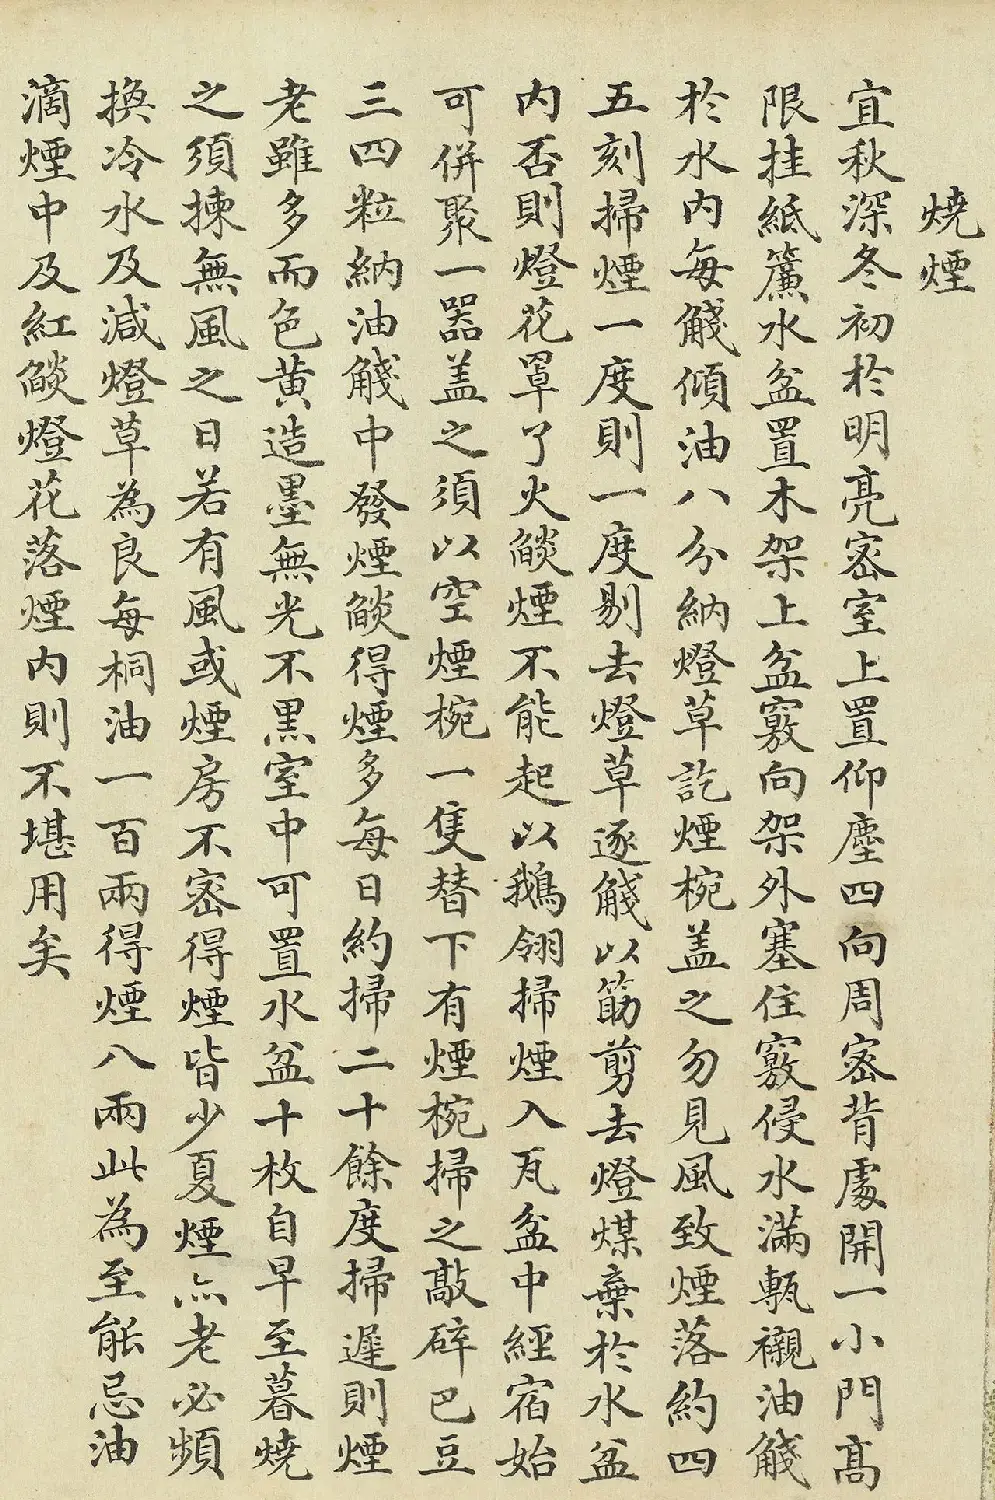 燒煙
宜秋深冬初於明亮密室上置仰塵四向周密背處開一小門高
限挂紙簾水盆置木架上盆竅向架外塞住竅侵水滿甎襯油觥
於水內每觥傾油八分納燈草訖煙椀盖之勿見風致煙落約四
五刻掃煙一度則一度剔去燈草逐觥以筯剪去燈煤棄於水盆
內否則燈花罩了火燄煙不能起以鵝翎掃煙入瓦盆中經宿始
可併聚一器盖之須以空煙椀一隻替下有煙椀掃之敲碎巴豆
三四粒納油觥中發煙燄得煙多每日約掃二十餘度掃遲則煙
老雖多而色黃造墨無光不黑室中可置水盆十枚自早至暮燒
之須揀無風之日若有風或煙房不密得煙皆少夏煙亦老必頻
換冷水及減燈草為良每桐油一百兩得煙八兩此為至能忌油
滴煙中及紅燄燈花落煙內則不堪用矣